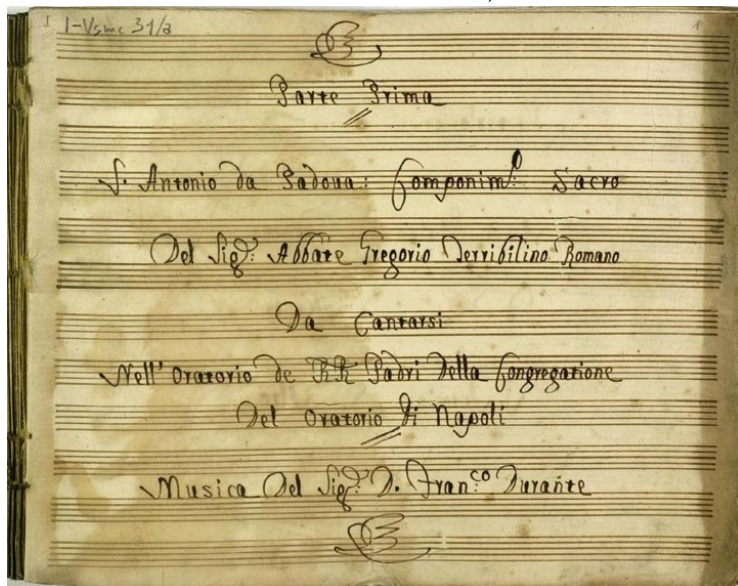 1 I-Vsmc 31/a
Parte Prima
S. Antonio da Padoua: Componimto: Sacro
Del Sigr: Abbate Gregorio Terribilino Romano
Da Cantarsi
Nell' Oratorio de RR Padri Della Congregatione
Del Oratorio di Napoli
Musica Del Sigr: D. Fran:co Durante